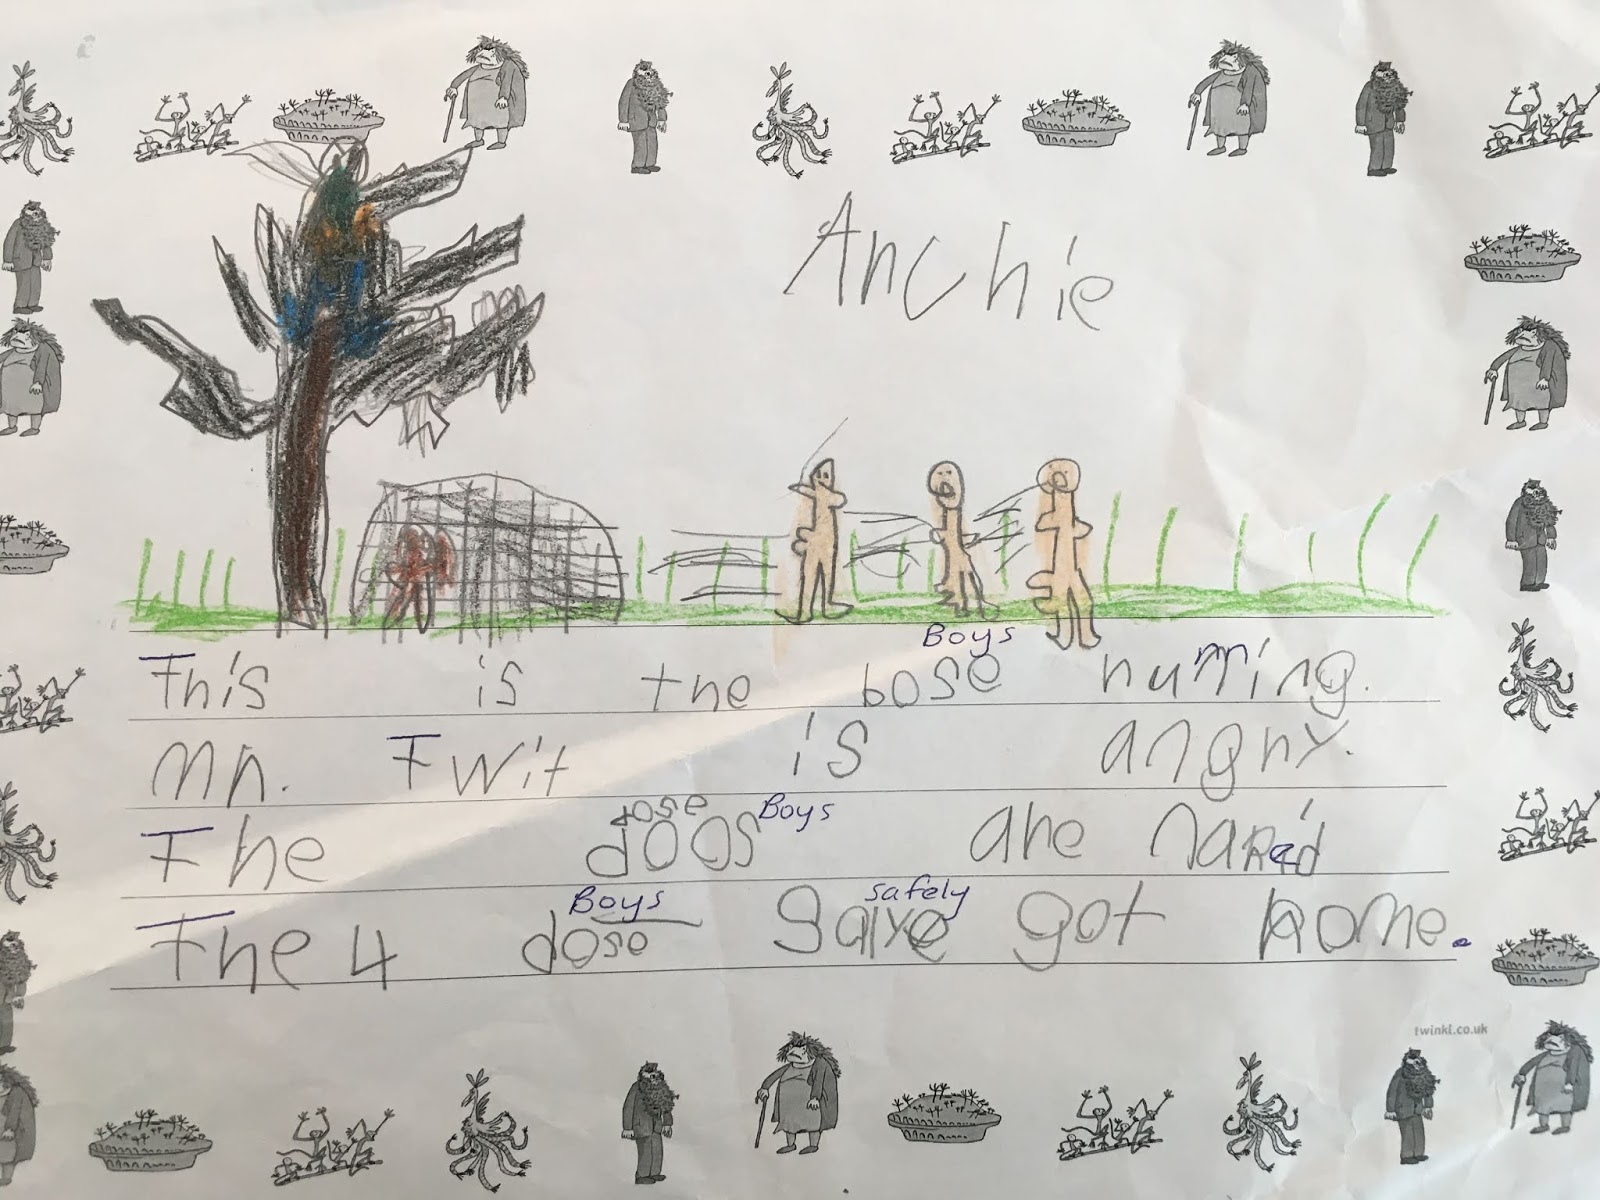 Archie
Boys
This is the bose running.
Mr. Twit is angry.
dose Boys
The doos are naked
Boys safely
The 4 dose salve got home.
twinkl.co.uk